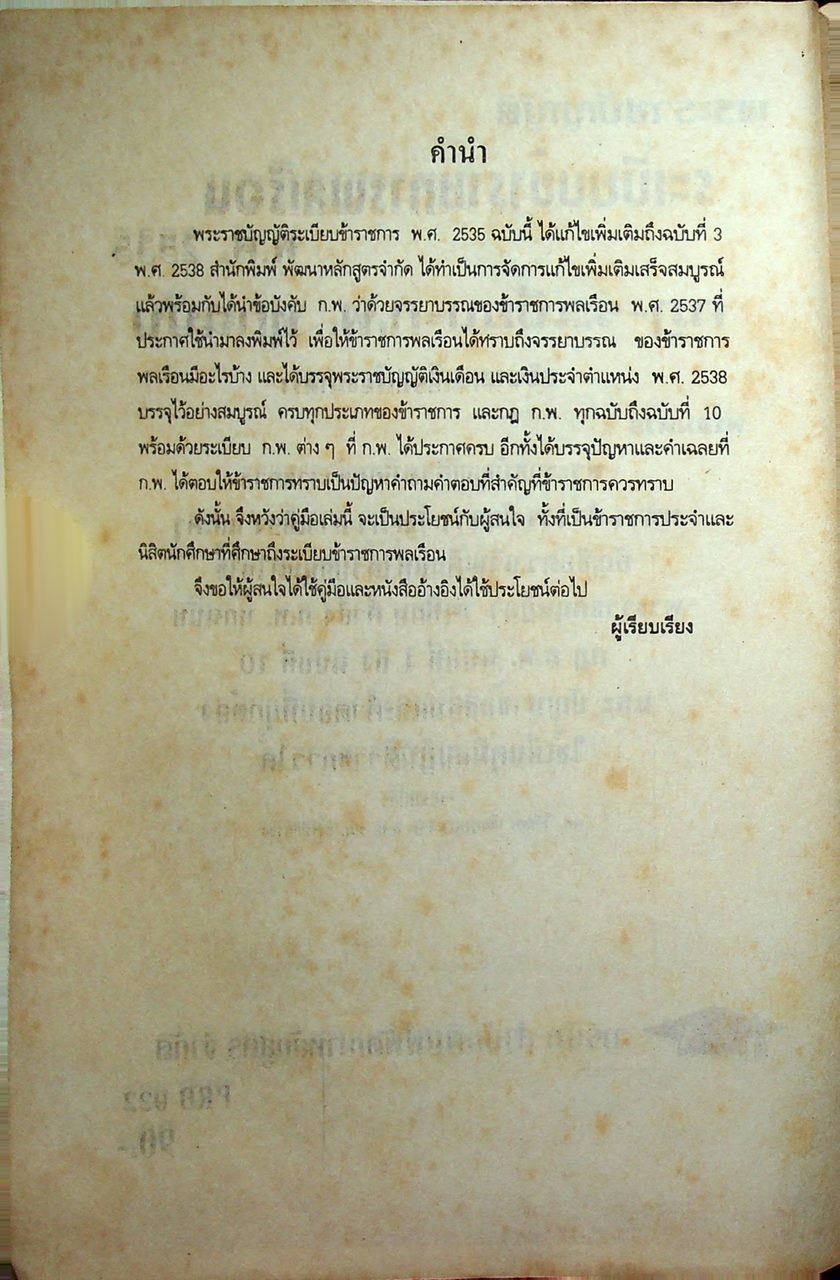 คำนำ
พระราชบัญญัติระเบียบข้าราชการ พ.ศ. 2535 ฉบับนี้ ได้แก้ไขเพิ่มเติมถึงฉบับที่ 3
พ.ศ. 2538 สำนักพิมพ์ พัฒนาหลักสูตรจำกัด ได้ทำเป็นการจัดการแก้ไขเพิ่มเติมเสร็จสมบูรณ์
แล้วพร้อมกับได้นำข้อบังคับ ก.พ. ว่าด้วยจรรยาบรรณของข้าราชการพลเรือน พ.ศ. 2537 ที่
ประกาศใช้นำมาลงพิมพ์ไว้ เพื่อให้ข้าราชการพลเรือนได้ทราบถึงจรรยาบรรณ ของข้าราชการ
พลเรือนมีอะไรบ้าง และได้บรรจุพระราชบัญญัติเงินเดือน และเงินประจำตำแหน่ง พ.ศ. 2538
บรรจุไว้อย่างสมบูรณ์ ครบทุกประเภทของข้าราชการ และกฎ ก.พ. ทุกฉบับถึงฉบับที่ 10
พร้อมด้วยระเบียบ ก.พ. ต่าง ๆ ที่ ก.พ. ได้ประกาศครบ อีกทั้งได้บรรจุปัญหาและคำเฉลยที่
ก.พ. ได้ตอบให้ข้าราชการทราบเป็นปัญหาคำถามคำตอบที่สำคัญที่ข้าราชการควรทราบ
ดังนั้น จึงหวังว่าคู่มือเล่มนี้ จะเป็นประโยชน์กับผู้สนใจ ทั้งที่เป็นข้าราชการประจำและ
นิสิตนักศึกษาที่ศึกษาถึงระเบียบข้าราชการพลเรือน
จึงขอให้ผู้สนใจได้ใช้คู่มือและหนังสืออ้างอิงได้ใช้ประโยชน์ต่อไป
ผู้เรียบเรียง